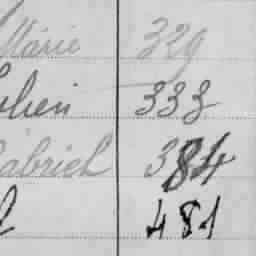 Marie 329
333
Gabriel 384
481